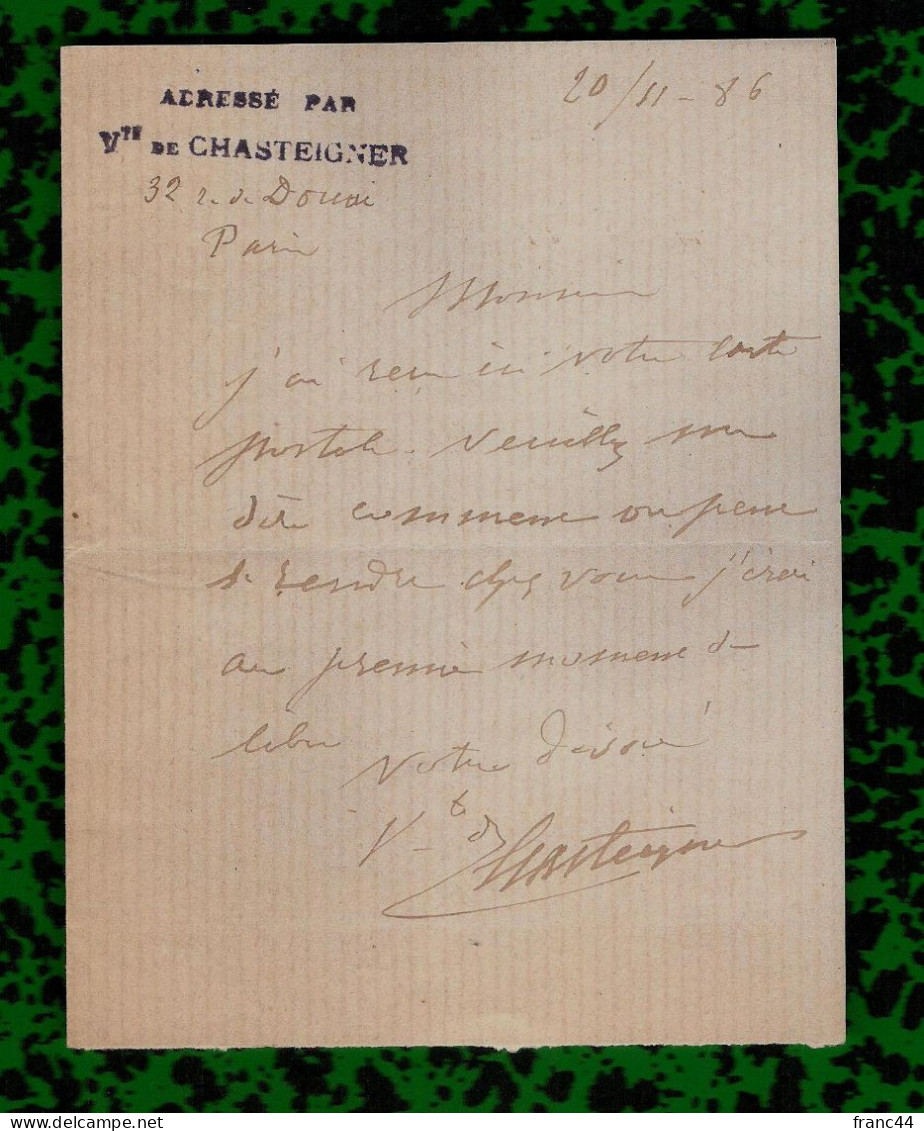 ADRESSÉ PAR
Vᵗᵉ DE CHASTEIGNER
20/11-86
32 r. de Douai
Paris
Monsieur
j'ai reçu ici votre carte
postale. Veuillez me
dire comment on peut
se rendre chez vous j'irai
au premier moment de
libre
Votre dévoué
Vte de Chasteigner
delcampe.net
franc44